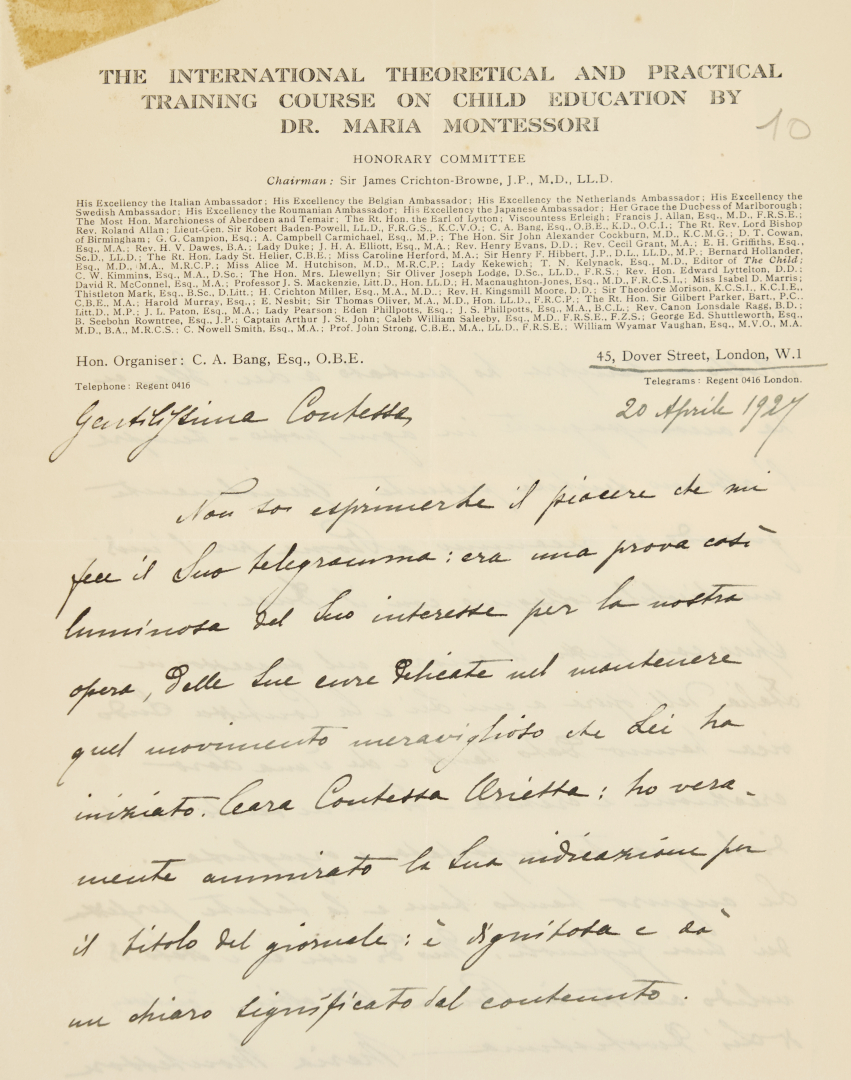 THE INTERNATIONAL THEORETICAL AND PRACTICAL
TRAINING COURSE ON CHILD EDUCATION BY
DR. MARIA MONTESSORI
10
HONORARY COMMITTEE
Chairman: Sir James Crichton-Browne, J.P., M.D., LL.D.
His Excellency the Italian Ambassador; His Excellency the Belgian Ambassador; His Excellency the Netherlands Ambassador; His Excellency the
Swedish Ambassador; His Excellency the Roumanian Ambassador; His Excellency the Japanese Ambassador; Her Grace the Duchess of Marlborough;
The Most Hon. Marchioness of Aberdeen and Temair; The Rt. Hon. the Earl of Lytton; Viscountess Erleigh; Francis J. Allan, Esq., M.D., F.R.S.E.;
Rev. Roland Allan; Lieut-Gen. Sir Robert Baden-Powell, LL.D., F.R.G.S., K.C.V.O.; C. A. Bang, Esq., O.B.E., K.D., O.C.I.; The Rt. Rev. Lord Bishop
of Birmingham; G. G. Campion, Esq.; A. Campbell Carmichael, Esq., M.P.; The Hon. Sir John Alexander Cockburn, M.D., K.C.M.G.; D. T. Cowan,
Esq., M.A.; Rev. H. V. Dawes, B.A.; Lady Duke; J. H. A. Elliott, Esq., M.A.; Rev. Henry Evans, D.D.; Rev. Cecil Grant, M.A.; E. H. Griffiths, Esq.,
Sc.D., LL.D.; The Rt. Hon. Lady St. Helier, C.B.E.; Miss Caroline Herford, M.A.; Sir Henry F. Hibbert, J.P., D.L., LL.D., M.P.; Bernard Hollander,
Esq., M.D., M.A., M.R.C.P.; Miss Alice M. Hutchison, M.D., M.R.C.P.; Lady Kekewich; T. N. Kelynack, Esq., M.D., Editor of The Child;
C. W. Kimmins, Esq., M.A., D.Sc.; The Hon. Mrs. Llewellyn; Sir Oliver Joseph Lodge, D.Sc., LL.D., F.R.S.; Rev. Hon. Edward Lyttelton, D.D.;
David R. McConnel, Esq., M.A.; Professor J. S. Mackenzie, Litt.D., Hon. LL.D.; H. Macnaughton-Jones, Esq., M.D., F.R.C.S.I.; Miss Isabel D. Marris;
Thistleton Mark, Esq., B.Sc., D.Litt.; H. Crichton Miller, Esq., M.A., M.D.; Rev. H. Kingsmill Moore, D.D.; Sir Theodore Morison, K.C.S.I., K.C.I.E.,
C.B.E., M.A.; Harold Murray, Esq.; E. Nesbit; Sir Thomas Oliver, M.A., M.D., Hon. LL.D., F.R.C.P.; The Rt. Hon. Sir Gilbert Parker, Bart., P.C.,
Litt.D., M.P.; J. L. Paton, Esq., M.A.; Lady Pearson; Eden Phillpotts, Esq.; J. S. Phillpotts, Esq., M.A., B.C.L.; Rev. Canon Lonsdale Ragg, B.D.;
B. Seebohm Rowntree, Esq., J.P.; Captain Arthur J. St. John; Caleb William Saleeby, Esq., M.D., F.R.S.E., F.Z.S.; George Ed. Shuttleworth, Esq.,
M.D., B.A., M.R.C.S.; C. Nowell Smith, Esq., M.A.; Prof. John Strong, C.B.E., M.A., LL.D., F.R.S.E.; William Wyamar Vaughan, Esq., M.V.O., M.A.
Hon. Organiser: C. A. Bang, Esq., O.B.E.
45, Dover Street, London, W.1
Telephone: Regent 0416
Telegrams: Regent 0416 London.
Gentilissima Contessa,
20 Aprile 1927
Non so esprimerle il piacere che mi
fece il Suo telegramma: era una prova così
luminosa del Suo interesse per la nostra
opera, delle Sue cure delicate nel mantenere
quel movimento meraviglioso che Lei ha
iniziato. Cara Contessa Orietta: ho vera-
mente ammirato la Sua indicazione per
il titolo del giornale: è dignitosa e dà
un chiaro significato dal contenuto.